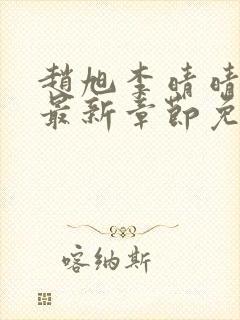 趙旭李晴晴
最新章節免
喀納斯